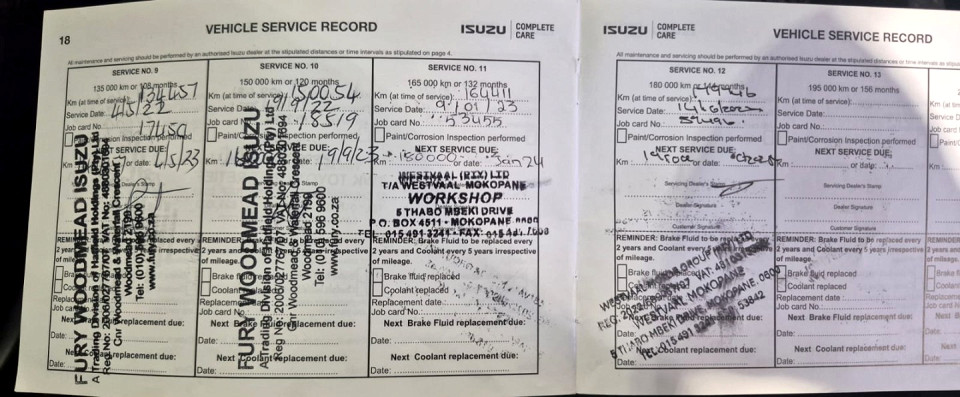 18
VEHICLE SERVICE RECORD
ISUZU COMPLETE CARE
All maintenance and servicing should be performed by an authorised Isuzu dealer at the stipulated distances or time intervals as stipulated on page 4.
SERVICE NO. 9
135 000 km or 108 months
Km (at time of service):
Service Date: 4/5/22
Job card No.: 17450
Paint/Corrosion Inspection performed
NEXT SERVICE DUE:
or date: 4/5/23
Dealer's Stamp
REMINDER: Brake Fluid to be replaced every
2 years and Coolant every 5 years irrespective
of mileage.
Brake fluid replaced
Coolant replaced
Replacement date:
Job card No:
Next Brake Fluid replacement due:
Date:
Next Coolant replacement due:
Date:
FURY WOODMEAD ISUZU
A Trading Division of Hatfield Holdings (Pty) Ltd
Reg No: 2006/027670/07 VAT No: 480301694
Cnr Woodmead & Waterfall Crescent
Woodmead 2199
Tel: (010) 596 9600
www.fury.co.za
SERVICE NO. 10
150 000 km or 120 months
Km (at time of service): 150054
Service Date: 19/9/22
Job card No.: 18519
Paint/Corrosion Inspection performed
NEXT SERVICE DUE:
Km
19/9/23
Stamp
REMINDER: Brake Fluid to be replaced every
2 years and Coolant every 5 years irrespective
of mileage.
Brake fluid replaced
Coolant replaced
Replacement date:
Job card No:
Next Brake Fluid replacement due:
Date:
Next Coolant replacement due:
Date:
FURY WOODMEAD ISUZU
A Trading Division of Hatfield Holdings (Pty) Ltd
Reg No: 2006/027670/07 VAT No: 480301694
Cnr Woodmead & Waterfall Crescent
Woodmead 2199
Tel: (010) 596 9600
www.fury.co.za
SERVICE NO. 11
165 000 km or 132 months
Km (at time of service): 164411
Service Date: 9/01/23
Job card No.: 53455
Paint/Corrosion Inspection performed
NEXT SERVICE DUE:
Km 180000 or date: Jan 24
WESTVAAL (PTY) LTD
T/A WESTVAAL MOKOPANE
WORKSHOP
5 THABO MBEKI DRIVE
P.O. BOX 4511 • MOKOPANE 0600
TEL. 015 491-3241 • FAX.
REMINDER: Brake Fluid to be replaced every
2 years and Coolant every 5 years irrespective
of mileage.
Brake fluid replaced
Coolant replaced
Replacement date:
Job card No:
Next Brake Fluid replacement due:
Date:
Next Coolant replacement due:
Date:
ISUZU COMPLETE CARE
VEHICLE SERVICE RECORD
All maintenance and servicing should be performed by an authorised Isuzu dealer at the stipulated distances or time intervals as
SERVICE NO. 12
180 000 km or 144 months
Km (at time of service):
Service Date:
Job card No.:
Paint/Corrosion Inspection performed
NEXT SERVICE DUE:
Km or date:
Servicing Dealer's Stamp
Dealer Signature
Customer Signature
REMINDER: Brake Fluid to be replaced every
2 years and Coolant every 5 years irrespective
of mileage.
Brake fluid
Coolant
Replacement
Job card No:
Next Brake Fluid replacement due:
Date:
Next Coolant replacement due:
Date:
WESTVAAL MOKOPANE
5 THABO MBEKI
MOKOPANE 0600
TEL: 015 491 3241
SERVICE NO. 13
195 000 km or 156 months
Km (at time of service):
Service Date:
Job card No.:
Paint/Corrosion Inspection performed
NEXT SERVICE DUE:
Km or date:
Servicing Dealer's Stamp
Dealer Signature
Customer Signature
REMINDER: Brake Fluid to be replaced every
2 years and Coolant every 5 years irrespective
of mileage.
Brake fluid replaced
Coolant replaced
Replacement date:
Job card No:
Next Brake Fluid replacement due:
Date:
Next Coolant replacement due:
Date: